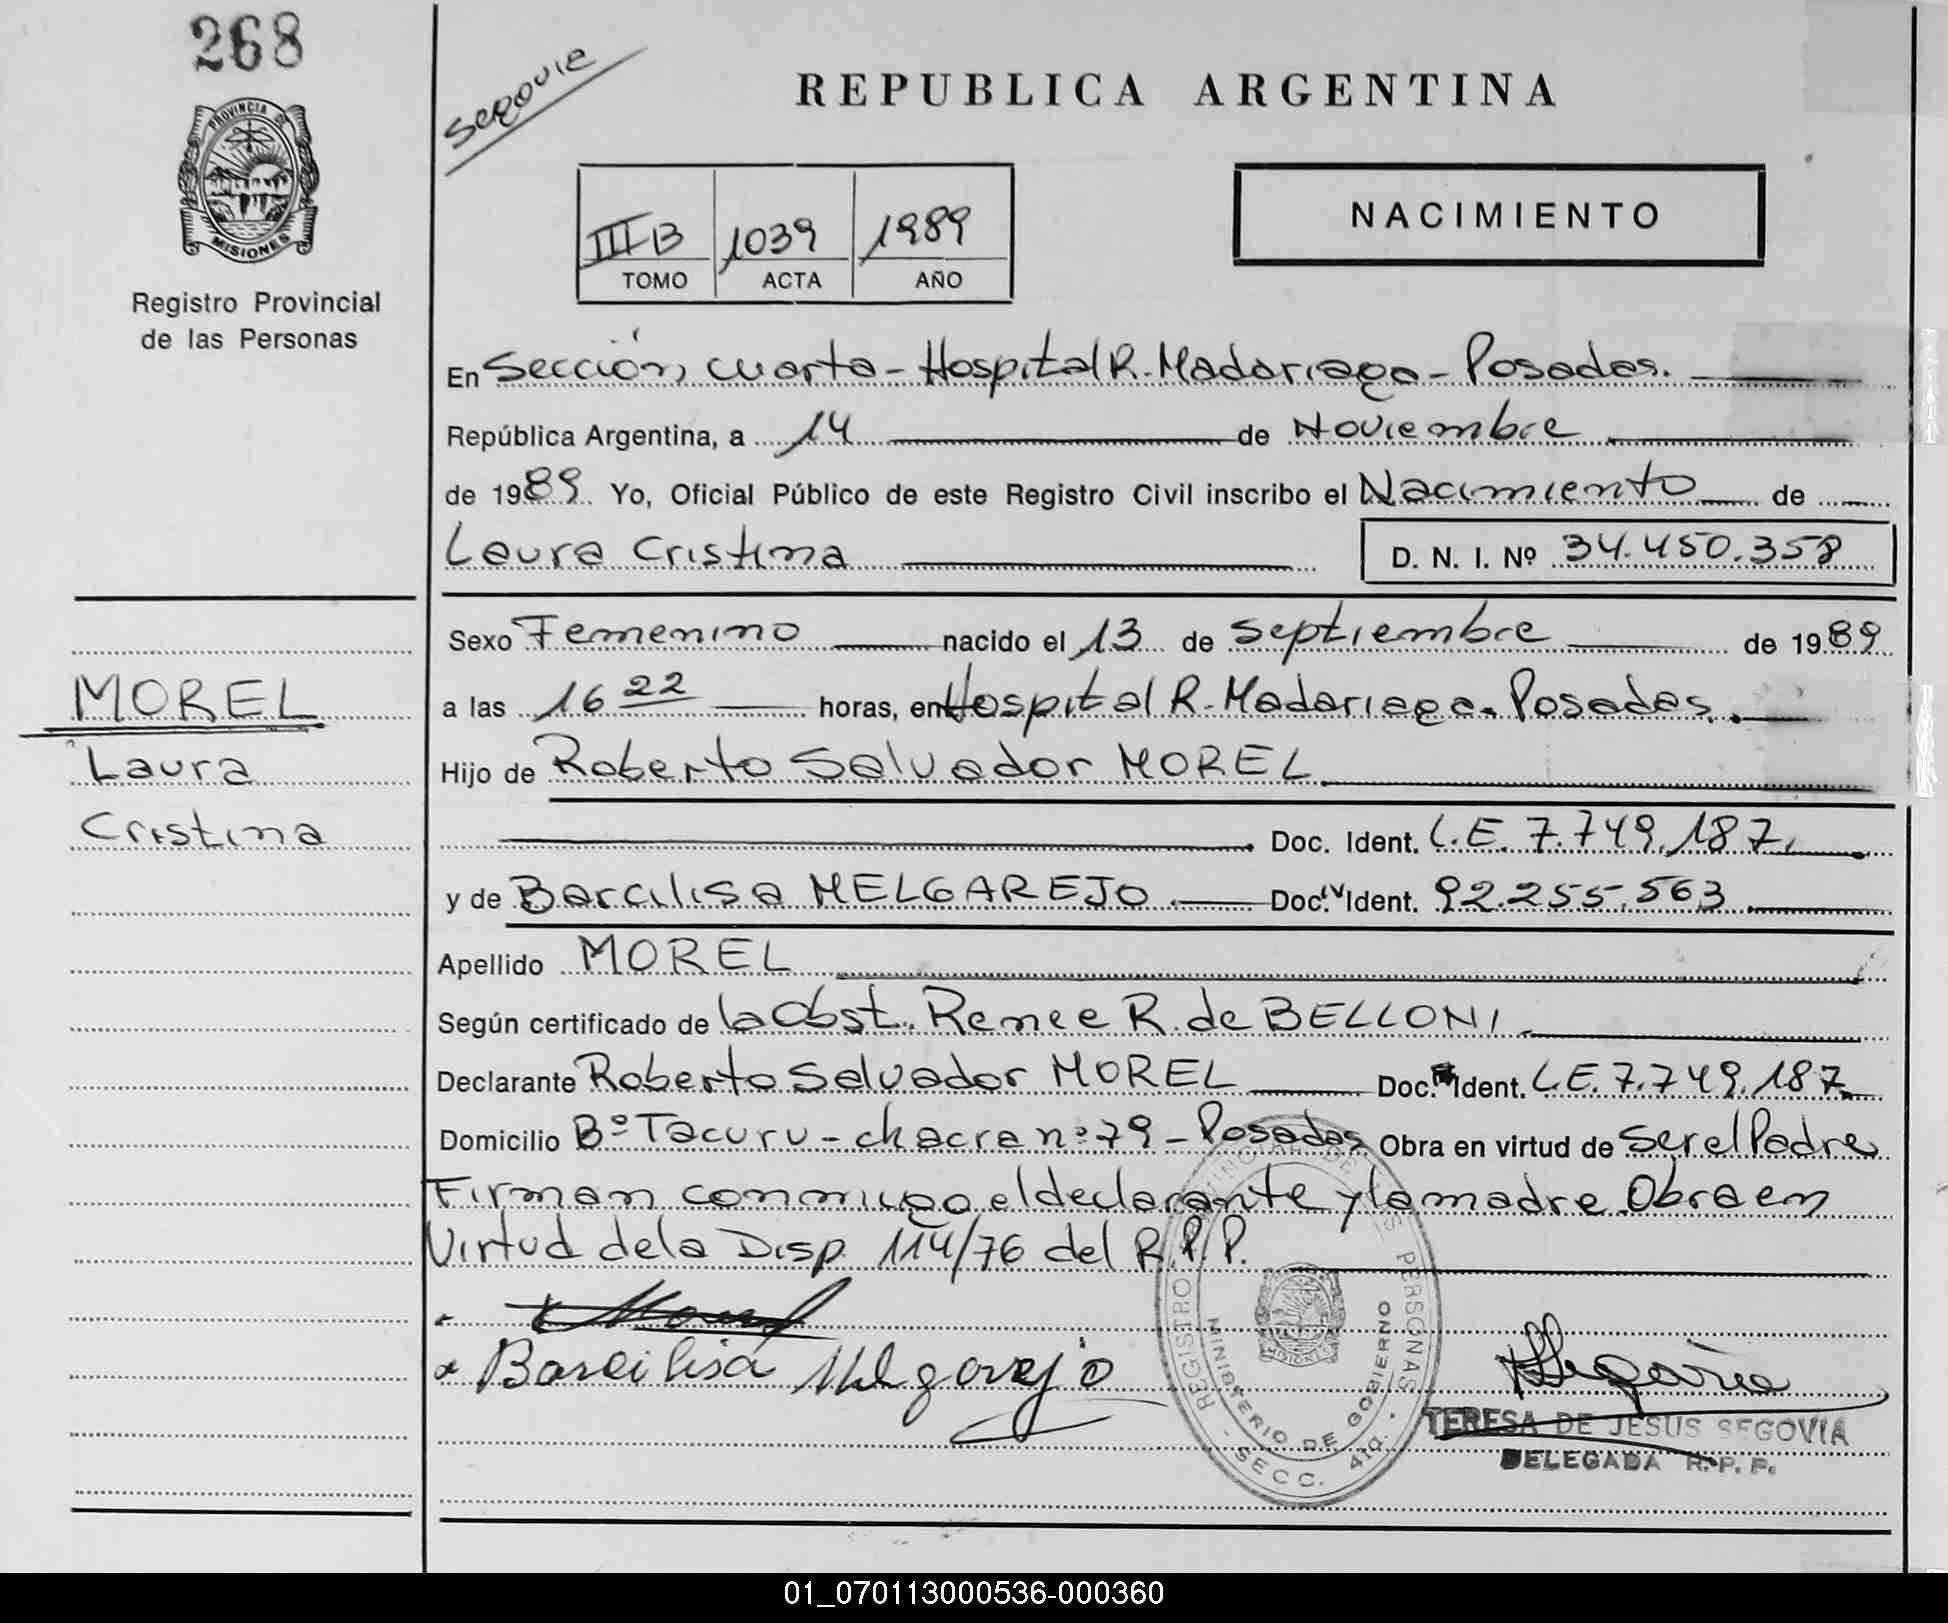 268
Segovia
PROVINCIA DE
MISIONES
Registro Provincial
de las Personas
REPUBLICA ARGENTINA
III B 1039 1989
TOMO ACTA AÑO
NACIMIENTO
En Sección cuarta - Hospital R. Madariaga - Posadas.
República Argentina, a 14 de Noviembre
de 1989 Yo, Oficial Público de este Registro Civil inscribo el Nacimiento de
Laura Cristina D. N. I. Nº 34.450.358
Sexo Femenino nacido el 13 de Septiembre de 1989
a las 16 22 horas, en Hospital R. Madariaga. Posadas.
Hijo de Roberto Salvador MOREL
Doc. Ident. L.E. 7.749.187.
y de Barcilisa MELGAREJO Doc. Ident. 92.255.563
Apellido MOREL
Según certificado de la Obst. Renee R. de BELLONI
Declarante Roberto Salvador MOREL Doc. Ident. L.E. 7.749.187
Domicilio Bº Tacuru - chacra nº 79 - Posadas Obra en virtud de Ser el Padre
Firman conmigo el declarante y la madre. Obra en
Virtud de la Disp. 114/76 del R.P.P.
Morel
Barcilisa Melgarejo
TERESA DE JESUS SEGOVIA
DELEGADA R.P.P.
REGISTRO PROVINCIAL DE LAS PERSONAS
MINISTERIO DE GOBIERNO
MISIONES
- SECC. 4ta. -
MOREL
Laura
Cristina
01_070113000536-000360